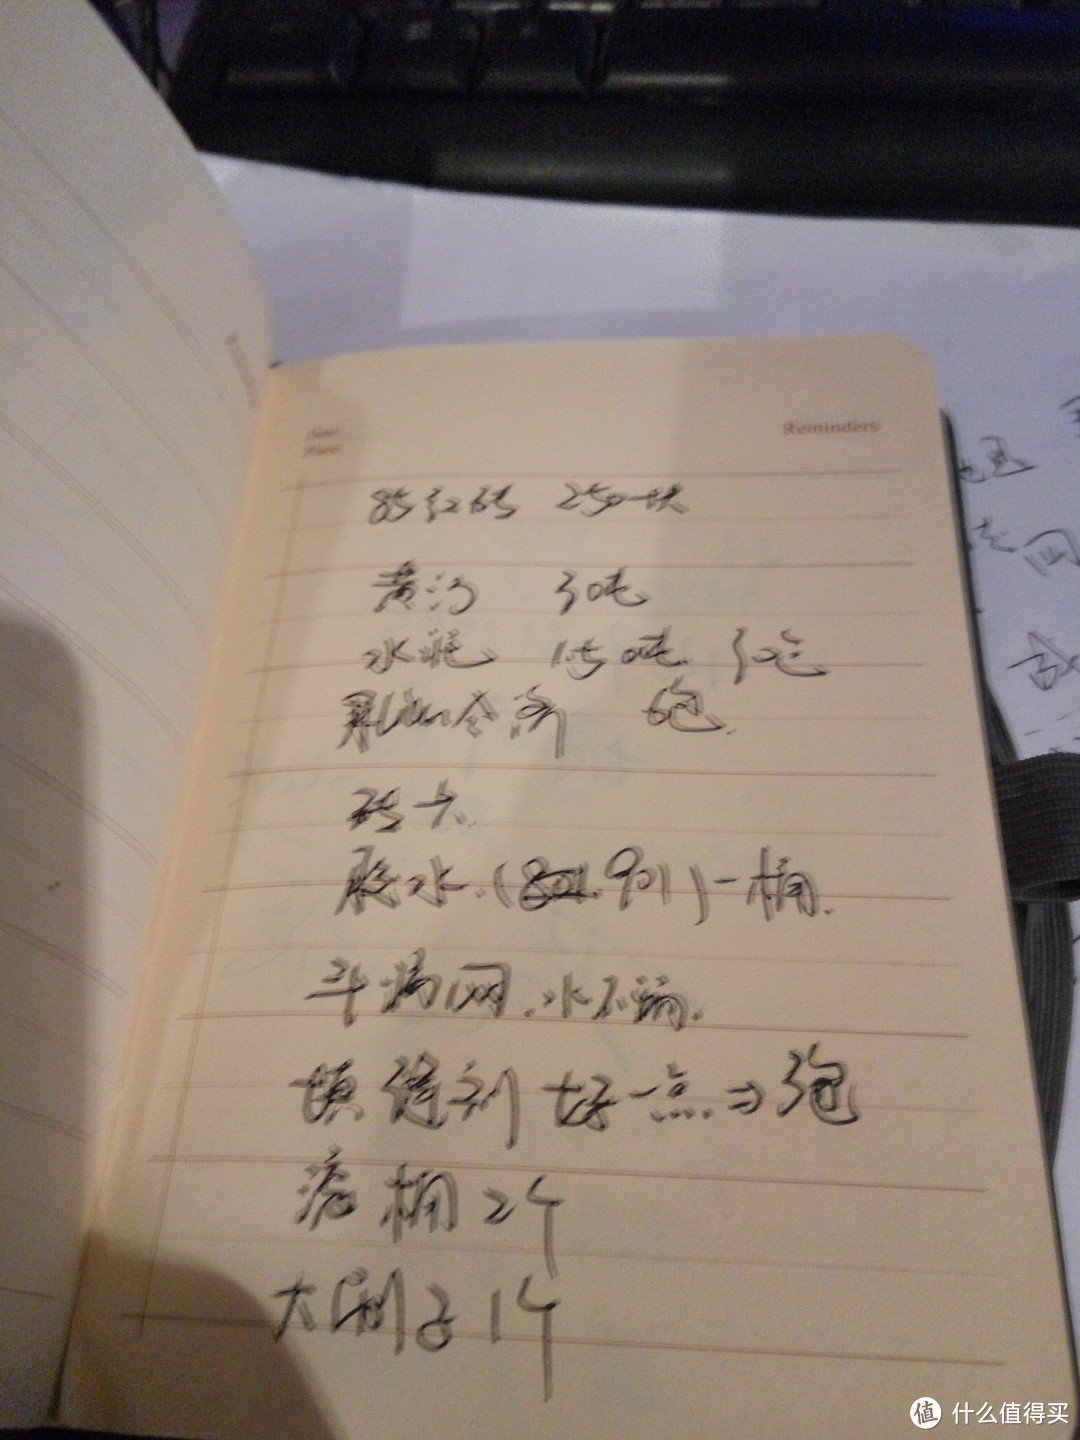 Date
Place
Reminders
85红砖 250块
黄沙 3吨
水泥 1.5吨 30包
包
砖卡
胶水.(801.901)一桶.
网.水不漏.
填缝剂 好一点⇒3包
桶 2个
大刷子 1个
值 什么值得买